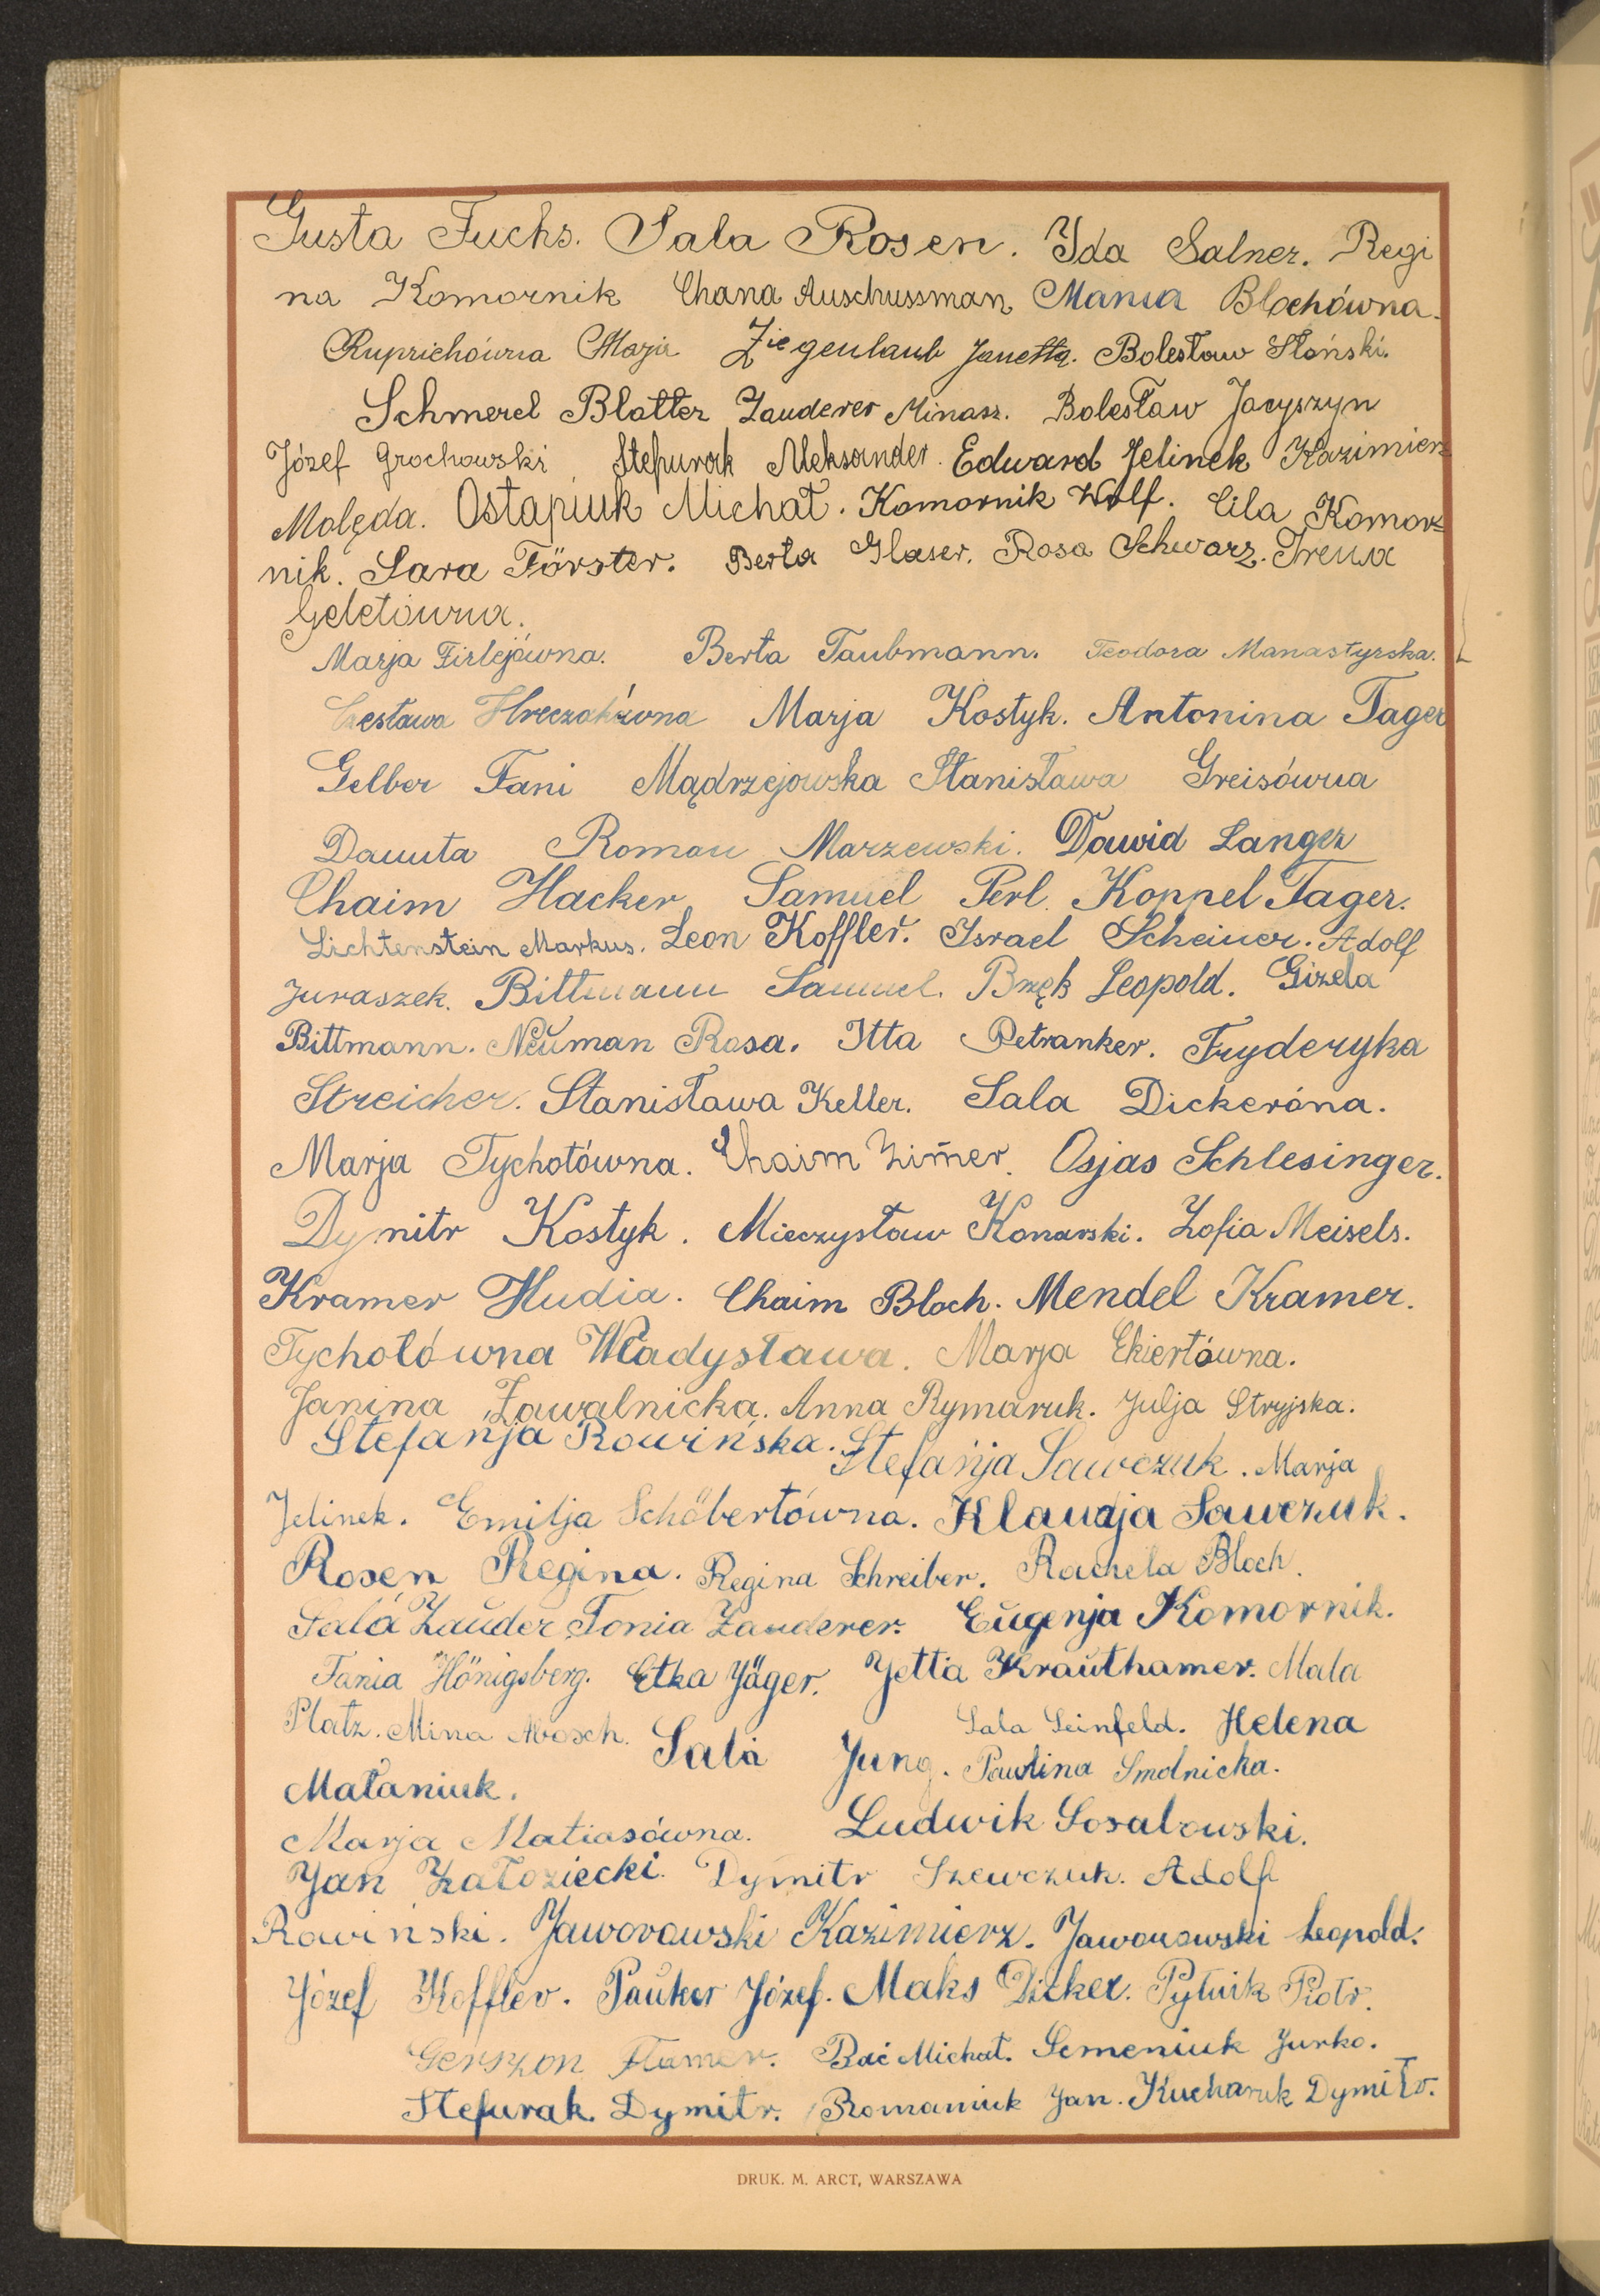 Gusta Fuchs. Sala Rosen. Ida Salner. Regi
na Komornik Chana Auschussman Mania Blochówna.
Ruprichówna Marja Ziegenlaub Janetta. Bolesław Słoński.
Schmerel Blatter Zauderer Minasz. Bolesław Jacyszyn
Józef Grochowski Stefurak Aleksander. Edward Jelinek Kazimierz
Molęda. Ostapiuk Michał. Komornik Wolf. Cila Komor=
nik. Sara Förster. Berta Glaser. Rosa Schwarz. Irena
Geletówna.
Marja Firlejówna. Berta Taubmann. Teodora Manastyrska.
Czesława Hreczakówna Marja Kostyk. Antonina Tager
Gelber Fani Mądrzejowska Stanisława Greisówna
Danuta Roman Marzewski. Dawid Langer
Chaim Hacker Samuel Perl. Koppel Tager.
Lichtenstein Markus. Leon Koffler. Israel Scheiner. Adolf
Juraszek. Bittmann Samuel. Bzęk Leopold. Gizela
Bittmann. Neuman Rosa. Itta Petranker. Fryderyka
Streicher. Stanisława Keller. Sala Dickeróna.
Marja Tychołówna. Chaim Zim̄er. Osjas Schlesinger.
Dymitr Kostyk. Mieczysław Konarski. Zofia Meisels.
Kramer Hudia. Chaim Bloch. Mendel Kramer.
Tychołówna Władysława. Marja Ekiertówna.
Janina Zawalnicka. Anna Rymaruk. Julja Stryjska.
Stefanja Rowińska. Stefanja Sawczuk. Marja
Jelinek. Emilja Schöbertówna. Klaudja Sawczuk.
Rosen Regina. Regina Schreiber. Rachela Bloch.
Sala Zauder Tonia Zauderer. Eugenja Komornik.
Fania Hönigsberg. Etka Jäger. Jetta Krauthamer. Mala
Platz. Mina Mosch. Sala Jung. Sala Seinfeld. Helena
Mataniuk. Paulina Smolnicka.
Marja Matiasówna. Ludwik Sosabowski.
Jan Załoziecki. Dymitr Szewczuk. Adolf
Rowiński. Jaworowski Kazimierz. Jaworowski Leopold.
Józef Koffler. Pauker Józef. Maks Dicker. Pytuik Piotr.
Gerszon Flamer. Bać Michał. Semeniuk Jurko.
Stefurak Dymitr. Romaniuk Jan. Kucharuk Dymitr.
DRUK. M. ARCT, WARSZAWA